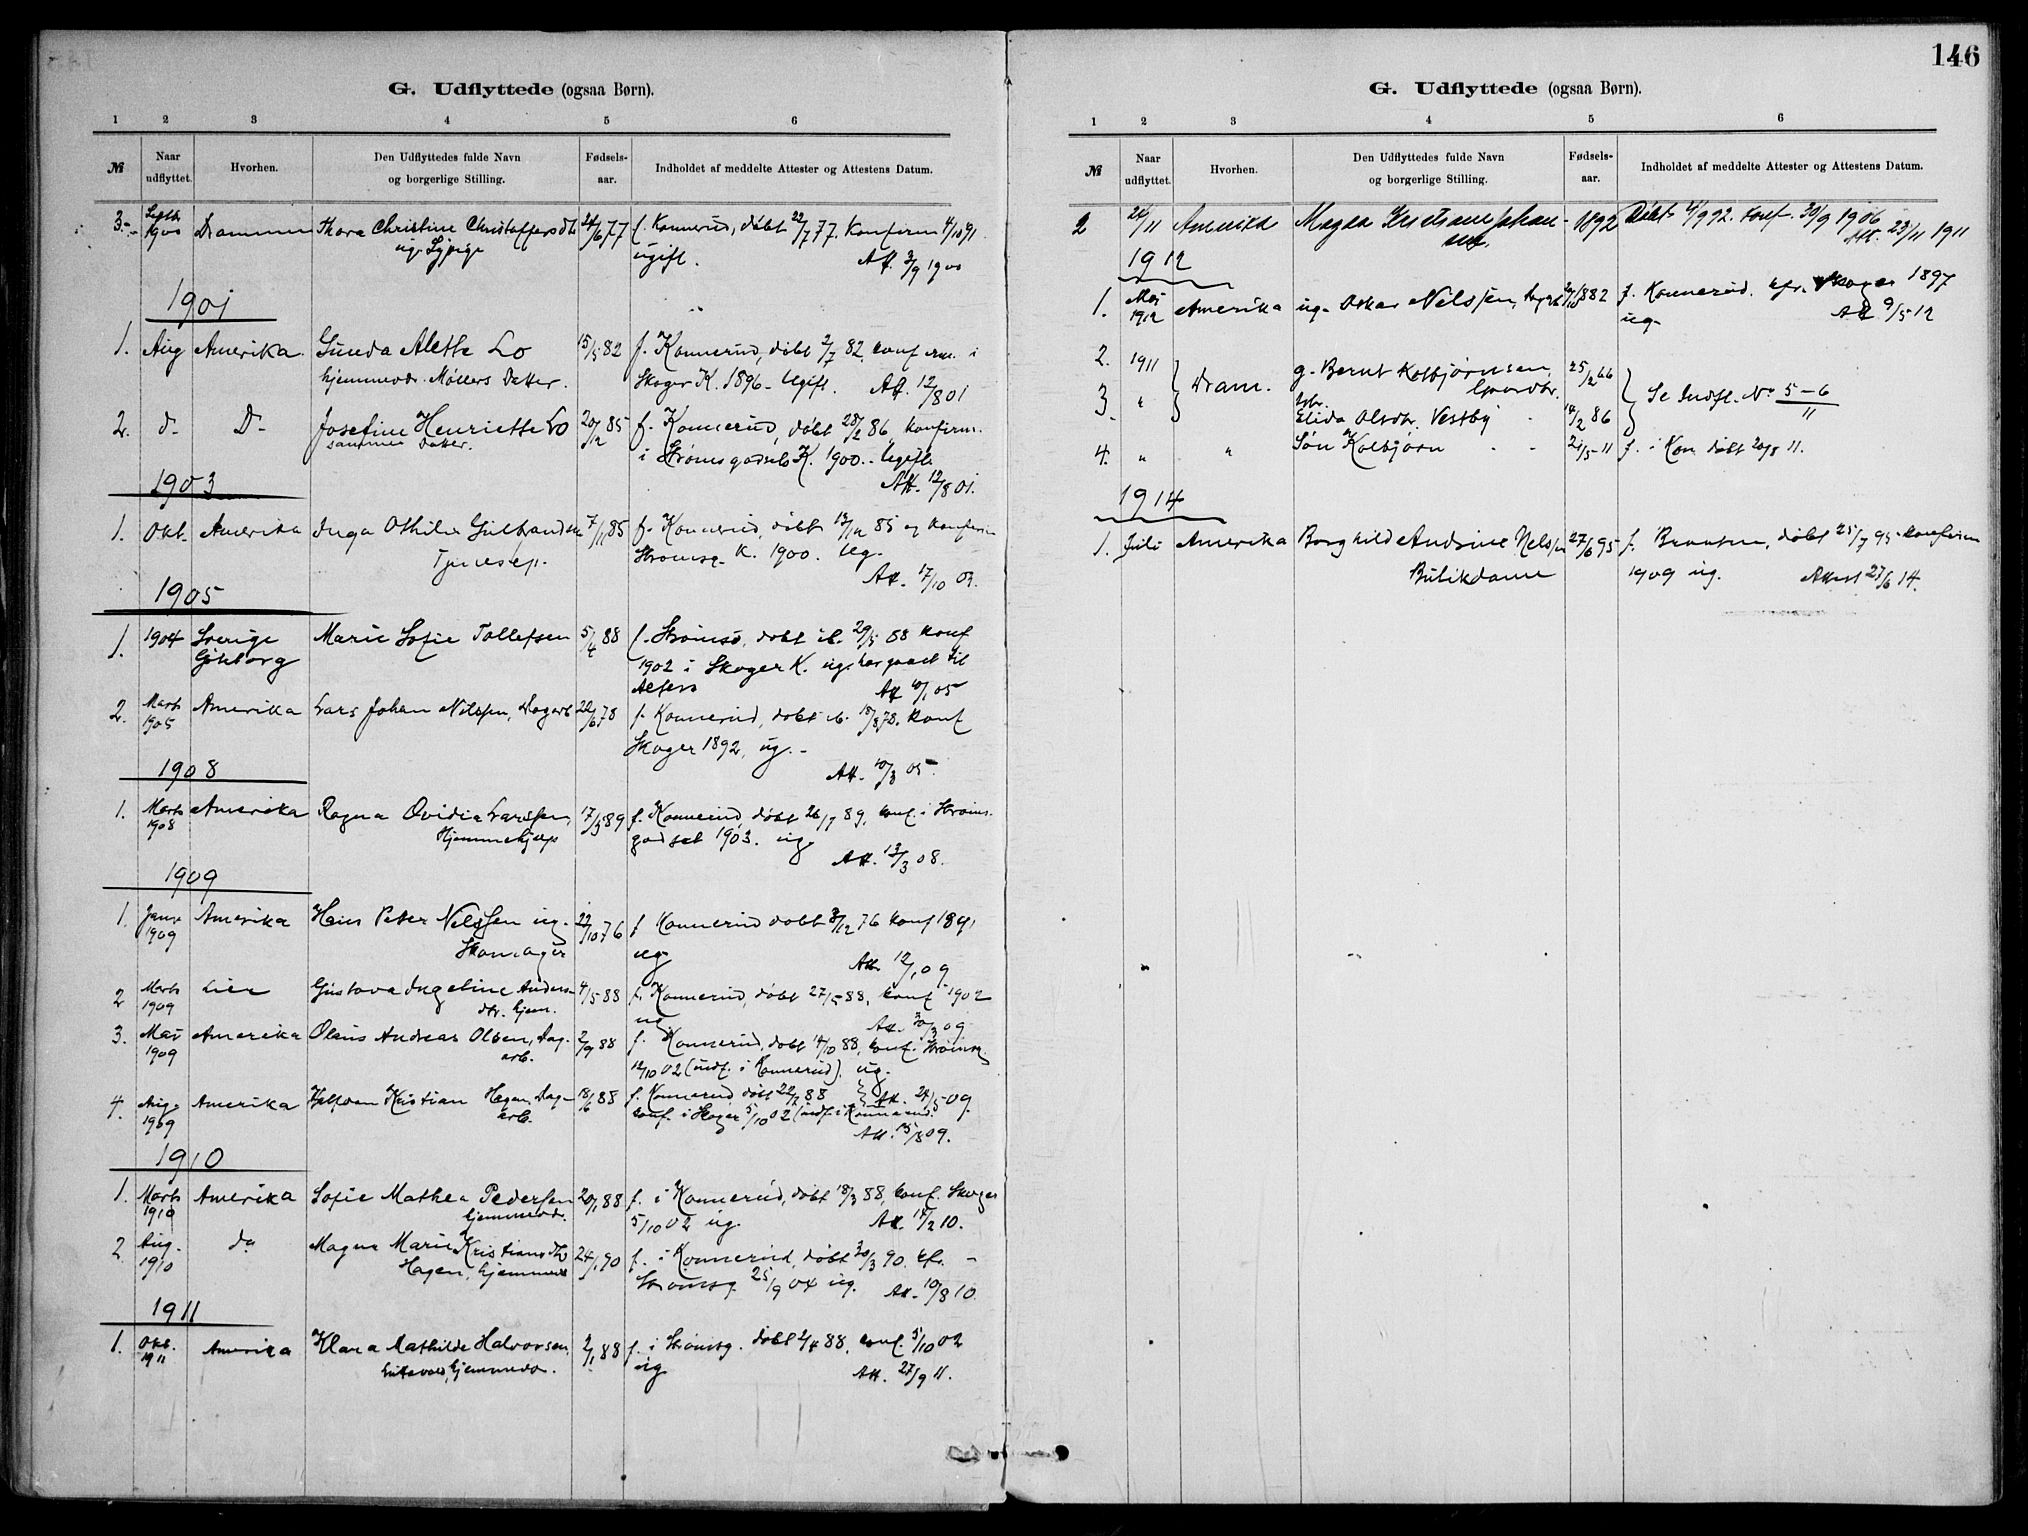 G. Udflyttede (ogsaa Børn).
1 2 3 4 5 6
№ Naar udflyttet. Hvorhen. Den Udflyttedes fulde Navn og borgerlige Stilling. Fødsels-aar. Indholdet af meddelte Attester og Attestens Datum.
3. Septbr 1900 Drammen Thora Christine Christoffersdtr 24/6 77 f. Konnerud, døbt 22/7 77. Konfirm 4/10 91
ug. Sypige ugift. Att. 3/9 1900
1901
1. Aug Amerika. Gunda Alette Lo 15/5 82 f. Konnerud, døbt 2/7 82, konfirm. i
hjemmevær. Møllers Datter. Skoger K. 1896 - Ugift. Att. 12/8 01
2. d- D- Josefine Henriette Lo 20/12 85 f. Konnerud, døbt 28/2 86, konfirm.
sammes Datter. i Strømsgodsets K. 1900. - Ugift.
Att. 12/8 01.
1903
1. Okt. Amerika Inga Othilie Gulbrandsen 7/11 85 f. Konnerud, døbt 13/12 85 og konfirm
Tjenestep. Strømsg. K. 1900. Ug.
Att. 17/10 03.
1905
1. 1904 Sverige Marie Sofie Tollefsen 5/4 88 f. Strømsø, døbt ib. 29/5 88 konf
Gøteborg 1902 i Skoger K. ug. har gaaet til
Alters Att 10/1 05
2. Marts 1905 Amerika Lars Johan Nilssen, Dagarb 22/6 78 f. Konnerud, døbt ib. 18/8 78. konf
Skoger 1892, ug. -
Att. 10/3 05.
1908
1. Marts 1908 Amerika Ragna Ovidia Larssen, 17/5 89 f. Konnerud, døbt 26/7 89, konf. i Strøms-
Hjemmehjælp godset 1903. ug.
Att. 13/3 08.
1909
1. Janr 1909 Amerika Hans Peter Nelssen ug. 22/10 76 f Konnerud døbt 3/12 76 konf 1891
Skomager ug
Att. 12/1 09
2 Marts 1909 Lier Gustava Ingeline Anders- 4/5 88 f. Konnerud, døbt 27/5 88, konf 1902
dtr. hjem. ug Att. 30/3 09
3. Mai 1909 Amerika Olaus Andreas Olsen, Dag- 2/9 88 f. Konnerud, døbt 14/10 88, konf. Strømsg.
arb. 12/10 02 (indf. i Konnerud). ug.
Att. 24/5 09.
4. Aug. 1909 Amerika Halfdan Kristian Hagen, Dag- 18/6 88 f. Konnerud døbt 22/7 88
arb. konf. i Skoger 5/10 02 (indf. i Konnerud.
Att. 15/8 09.
1910
1. Marts 1910 Amerika Sofie Mathea Pedersen 20/1 88 f. i Konnerud, døbt 18/3 88, konf. Skoger
hjemmevær. 5/10 02 ug. Att. 14/2 10.
2. Aug. 1910 do Magna Marie Kristiansdtr 24/1 90 f. i Konnerud, døbt 30/3 90. kfr. -
Hagen, hjemmevær Strømsg. 25/9 04 ug. Att. 10/8 10.
1911
1. Okt. 1911 Amerika Klara Mathilde Halvorsen, 2/1 88 f. i Strømsg. døbt 2/4 88, konf. 5/10 02
hjemmevær. ug Att. 27/9 11.
146
G. Udflyttede (ogsaa Børn).
1 2 3 4 5 6
№ Naar udflyttet. Hvorhen. Den Udflyttedes fulde Navn og borgerlige Stilling. Fødsels-aar. Indholdet af meddelte Attester og Attestens Datum.
2 24/11 Amerika Magda Kristiane Johan- 1892 Døbt 4/9 92. konf. 30/9 1906
sen. Att. 23/11 1911
1912
1. Mai 1912 Amerika ug. Oskar Nilssen, Dagarb 1882 f. Konnerud. kfr. Skoger 1897
ug. Att 9/5 12
2. 1911 g. Bernt Kolbjørnsen, 25/2 66
Gaardbr.
3. " Dram. Elida Olsdtr. Vestby 14/2 86 Se Indfl. No 5-6/11
4. " " Søn Kolbjørn 21/5 11 f. i Kon. døbt 20/8 11.
1914
1. Juli Amerika Borghilde Andrine Nelssen 27/6 95 f. døbt 25/7 95 konfirm
Butikdame 1909 ug. Attest 27/6 14.